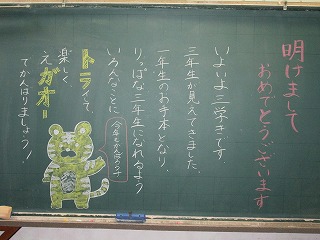 明けまして
おめでとうございます
いよいよ三学きです。
三年生が見えてきました
一年生のお手本となり、
りっぱな三年生になれるよう
いろんなことに
トラいて、
楽しく、
えガオー
でがんばりましょう!
今年もがんばろうね